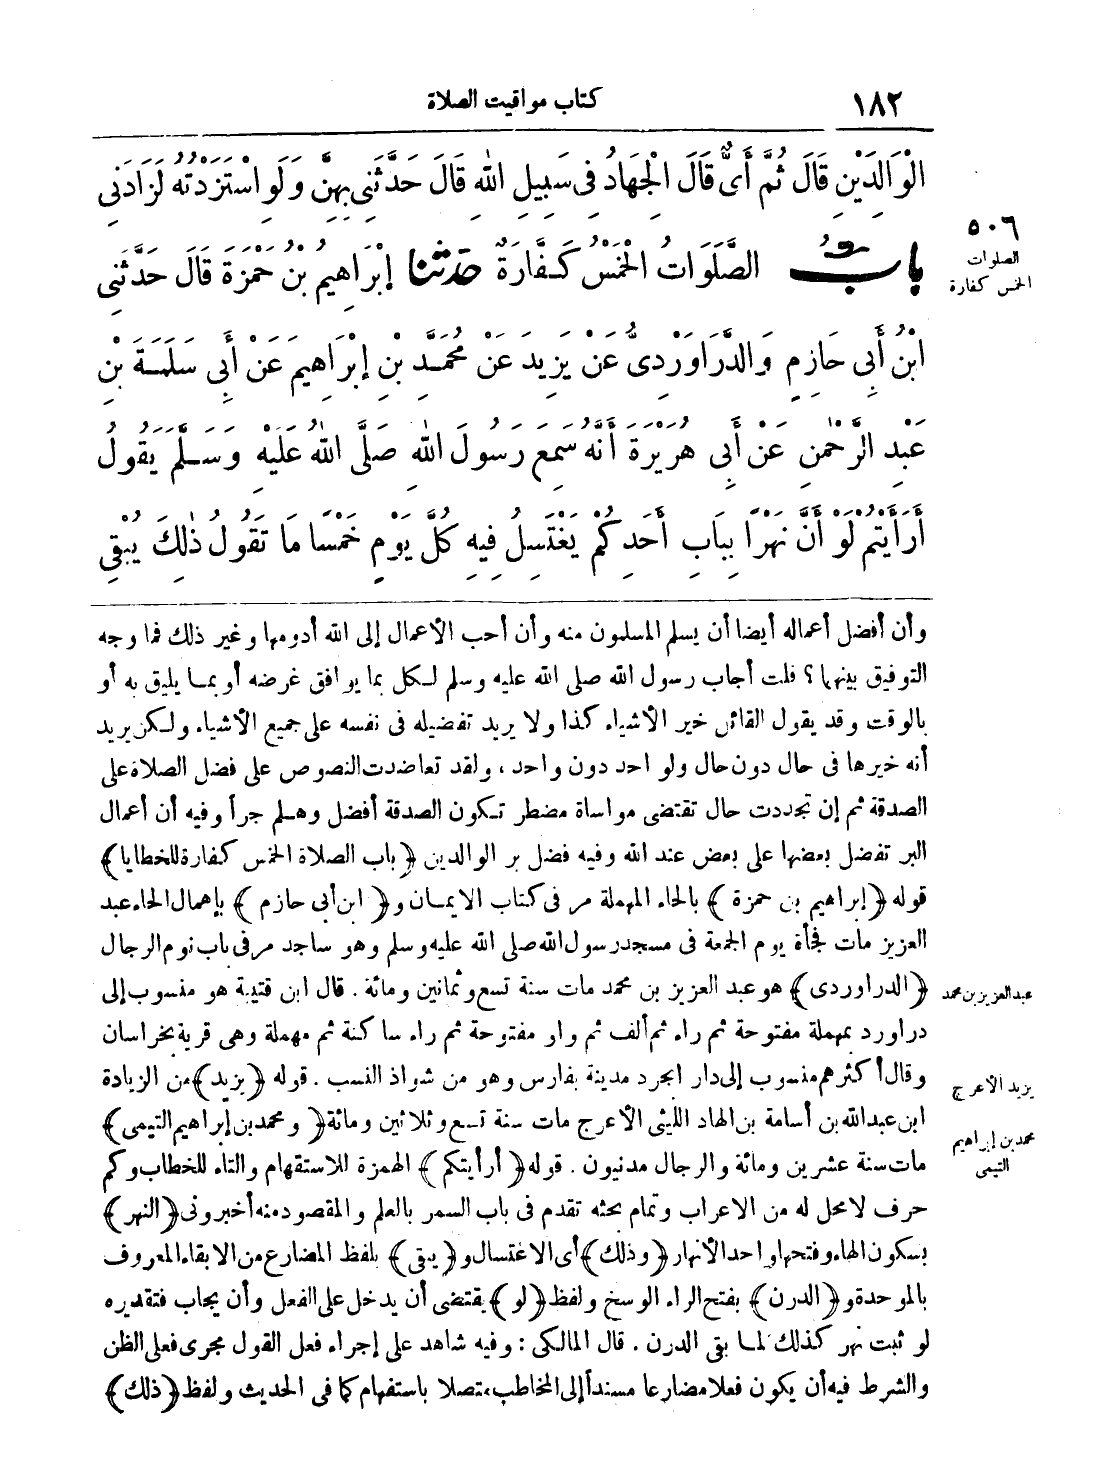 ١٨٢
كتاب مواقيت الصلاة
الْوَالِدَيْنِ قَالَ ثُمَّ أَىٌّ قَالَ الْجِهَادُ فِى سَبِيلِ اللهِ قَالَ حَدَّثَنِى بِهِنَّ وَلَوِ اسْتَزَدْتُهُ لَزَادَنِى
٥٠٦
الصلوات
الخمس كفارة
بَابٌ الصَّلَوَاتُ الْخَمْسُ كَفَّارَةٌ حَدَّثَنَا إِبْرَاهِيمُ بْنُ حَمْزَةَ قَالَ حَدَّثَنِى
ابْنُ أَبِى حَازِمٍ وَالدَّرَاوَرْدِىُّ عَنْ يَزِيدَ عَنْ مُحَمَّدِ بْنِ إِبْرَاهِيمَ عَنْ أَبِى سَلَمَةَ بْنِ
عَبْدِ الرَّحْمٰنِ عَنْ أَبِى هُرَيْرَةَ أَنَّهُ سَمِعَ رَسُولَ اللهِ صَلَّى اللهُ عَلَيْهِ وَسَلَّمَ يَقُولُ
أَرَأَيْتُمْ لَوْ أَنَّ نَهْرًا بِبَابِ أَحَدِكُمْ يَغْتَسِلُ فِيهِ كُلَّ يَوْمٍ خَمْسًا مَا تَقُولُ ذٰلِكَ يُبْقِى
وأن أفضل أعماله أيضا أن يسلم المسلمون منه وأن أحب الأعمال إلى الله أدومها وغير ذلك فما وجه
التوفيق بينها؟ قلت أجاب رسول الله صلى الله عليه وسلم لكل بما يوافق غرضه أو بما يليق به أو
بالوقت وقد يقول القائل خير الأشياء كذا ولا يريد تفضيله فى نفسه على جميع الأشياء ولكن يريد
أنه خيرها فى حال دون حال ولو احد دون واحد ، ولقد تعاضدت النصوص على فضل الصلاة على
الصدقة ثم إن تجددت حال تقتضى مواساة مضطر تكون الصدقة أفضل وهلم جرا وفيه أن أعمال
البر تفضل بعضها على بعض عند الله وفيه فضل بر الوالدين ﴿باب الصلاة الخمس كفارة للخطايا﴾
قوله ﴿إبراهيم بن حمزة﴾ بالحاء المهملة مر فى كتاب الايمان و﴿ابن أبى حازم﴾ بإهمال الحاء عبد
العزيز مات فجأة يوم الجمعة فى مسجد رسول الله صلى الله عليه وسلم وهو ساجد مر فى باب نوم الرجال
﴿الدراوردى﴾ هو عبد العزيز بن محمد مات سنة تسع وثمانين ومائة . قال ابن قتيبة هو منسوب إلى
عبد العزيز بن محمد
دراورد بمهملة مفتوحة ثم راء ثم ألف ثم واو مفتوحة ثم راء ساكنة ثم مهملة وهى قرية بخراسان
وقال أكثرهم منسوب إلى دار ابجرد مدينة بفارس وهو من شواذ النسب . قوله ﴿يزيد﴾ من الزيادة
يزيد الأعرج
ابن عبد الله بن أسامة بن الهاد الليثى الأعرج مات سنة تسع وثلاثين ومائة ﴿ومحمد بن إبراهيم التيمى﴾
محمد بن إبراهيم
التيمى
مات سنة عشرين ومائة والرجال مدنيون . قوله ﴿أرأيتكم﴾ الهمزة للاستفهام والتاء للخطاب وكم
حرف لا محل له من الاعراب وتمام بحثه تقدم فى باب السمر بالعلم والمقصود منه أخبرونى ﴿النهر﴾
بسكون الهاء وفتحها واحد الأنهار ﴿وذلك﴾ أى الاغتسال و﴿يبقى﴾ بلفظ المضارع من الابقاء المعروف
بالموحدة و﴿الدرن﴾ بفتح الراء الوسخ ولفظ ﴿لو﴾ يقتضى أن يدخل على الفعل وأن يجاب فتقديره
لو ثبت نهر كذلك لما بقى الدرن . قال المالكى : وفيه شاهد على إجراء فعل القول مجرى فعل الظن
والشرط فيه أن يكون فعلا مضارعا مسندا إلى المخاطب متصلا باستفهام كما فى الحديث ولفظ ﴿ذلك﴾